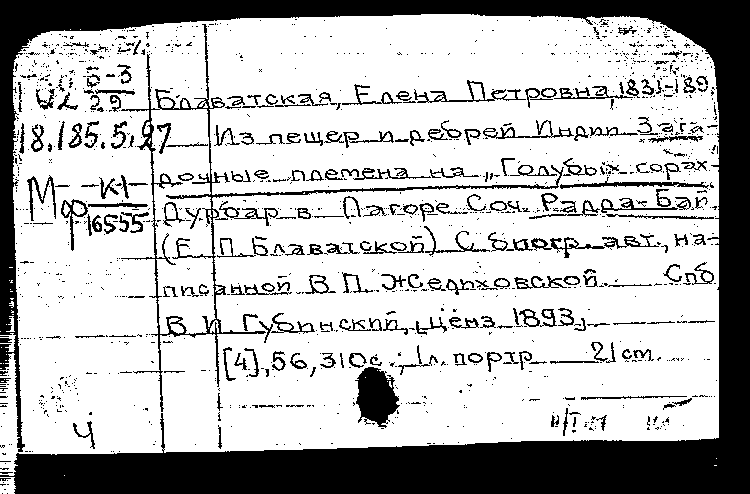 Б-3
29
Блаватская, Елена Петровна, 1831-189
18.185.5.27
Из пещер и дебрей Индии Зага-
дочные племена на „Голубых горах
М ф К-1
16555
Дурбар в Лагоре Соч. Радда-Бай
(Е. П. Блаватской) С биогр. авт., на-
писанной В П. Желиховской Спб
В. И. Губинский, [ценз 1893]
[4], 56, 310с.; 1л. портр 21 cm.
4